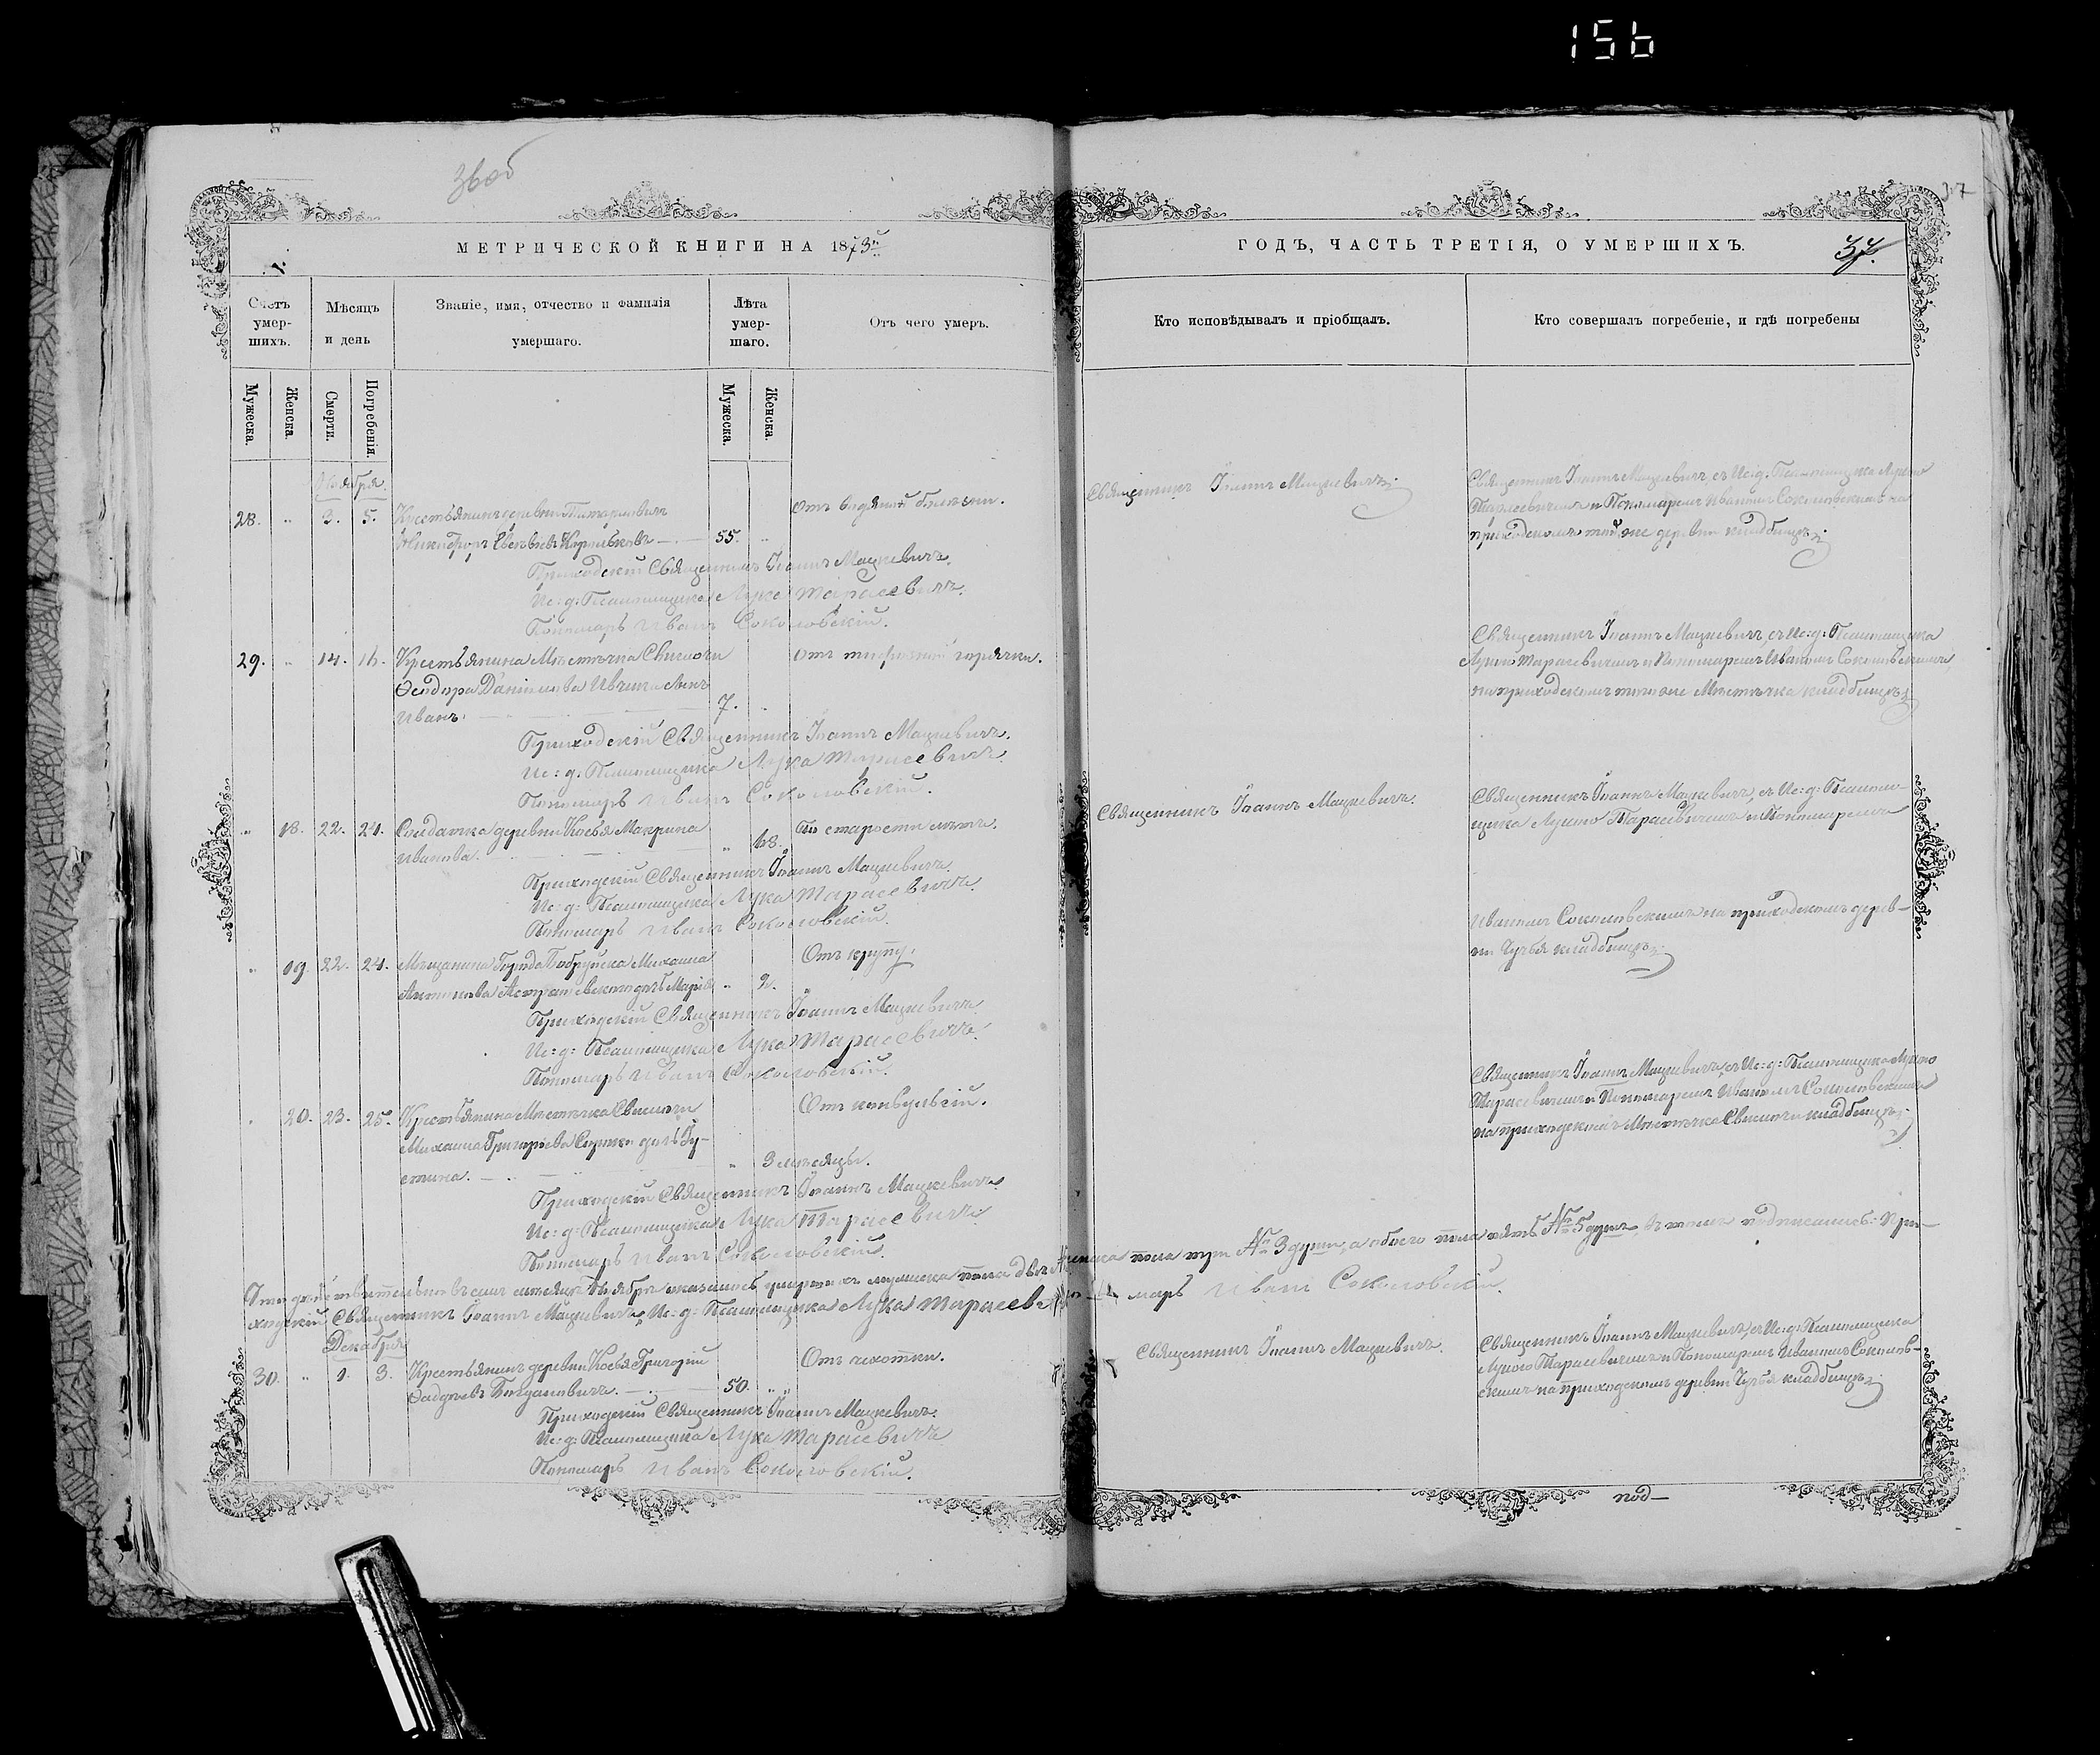 156
37
МЕТРИЧЕСКОЙ КНИГИ НА 1873й
ГОДЪ, ЧАСТЬ ТРЕТІЯ, О УМЕРШИХЪ.
37.
Счетъ умер-шихъ.
Мѣсяцъ и день
Званіе, имя, отчество и фамилія умершаго.
Лѣта умер-шаго.
Отъ чего умеръ.
Кто исповѣдывалъ и пріобщалъ.
Кто совершалъ погребеніе, и гдѣ погребены
Мужеска.
Женска.
Смерти.
Погребенія.
Мужеска.
Женска.
Ноября.
28. " 3. 5. Крестьянинъ деревни
Никифоръ 55. "
Отъ водяной болѣзни.
Приходскій Священникъ Іоаннъ Мацкевичъ.
Ис: д: Псаломщика Лука Тарасевичъ.
Пономарь Иванъ Соколовскій.
Священникъ Іоаннъ Мацкевичъ.
Священникъ Іоаннъ Мацкевичъ съ Ис: д: Псаломщика Лукою
Тарасевичемъ и Пономаремъ Иваномъ Соколовскимъ на
приходскомъ той же деревни кладбищѣ.
29. " 14. 16. Крестьянина Мѣстечка Свислочи
Ѳеодора Даніилова сынъ
Иванъ. 7. "
Отъ горячки.
Приходскій Священникъ Іоаннъ Мацкевичъ.
Ис: д: Псаломщика Лука Тарасевичъ.
Пономарь Иванъ Соколовскій.
Священникъ Іоаннъ Мацкевичъ, съ Ис: д: Псаломщика
Лукою Тарасевичемъ и Пономаремъ Иваномъ Соколовскимъ,
на приходскомъ того же Мѣстечка кладбищѣ.
" 18. 22. 24. Солдатка деревни Макрина
Иванова. " 68.
По старости лѣтъ.
Приходскій Священникъ Іоаннъ Мацкевичъ.
Ис: д: Псаломщика Лука Тарасевичъ.
Пономарь Иванъ Соколовскій.
Священникъ Іоаннъ Мацкевичъ.
Священникъ Іоаннъ Мацкевичъ, съ Ис: д: Псаломщика
Лукою Тарасевичемъ и Пономаремъ
Иваномъ Соколовскимъ на приходскомъ дерев-
ни кладбищѣ.
" 19. 22. 24. Мѣщанина Города Бобруйска Михаила
Антонова дочь Марія " 2.
Отъ крупу.
Приходскій Священникъ Іоаннъ Мацкевичъ.
Ис: д: Псаломщика Лука Тарасевичъ.
Пономарь Иванъ Соколовскій.
" 20. 23. 25. Крестьянина Мѣстечка Свислочи
Михаила Григоріева дочь Іу-
стина. " 3 мѣсяцы.
Отъ конвульсій.
Приходскій Священникъ Іоаннъ Мацкевичъ.
Ис: д: Псаломщика Лука Тарасевичъ.
Пономарь Иванъ Соколовскій.
Священникъ Іоаннъ Мацкевичъ, съ Ис: д: Псаломщика Лукою
Тарасевичемъ и Пономаремъ Иваномъ Соколовскимъ
на приходскомъ Мѣстечка Свислочи кладбищѣ.
Что дѣйствительно въ семъ мѣсяцѣ Ноябрѣ оказалось умершихъ мужеска пола двѣ женска пола три № 3 души, а обоего пола пять № 5 душъ, въ томъ подписались: При-
ходскій Священникъ Іоаннъ Мацкевичъ, Ис: д: Псаломщика Лука Тарасевичъ, Пономарь Иванъ Соколовскій.
Декабря.
30. " 1. 3. Крестьянинъ деревни Григорій
Богдановичъ. 50. "
Отъ чахотки.
Приходскій Священникъ Іоаннъ Мацкевичъ.
Ис: д: Псаломщика Лука Тарасевичъ
Пономарь Иванъ Соколовскій.
Священникъ Іоаннъ Мацкевичъ.
Священникъ Іоаннъ Мацкевичъ, съ Ис: д: Псаломщика
Лукою Тарасевичемъ и Пономаремъ Иваномъ Соколов-
скимъ на приходскомъ деревни кладбищѣ.
под—